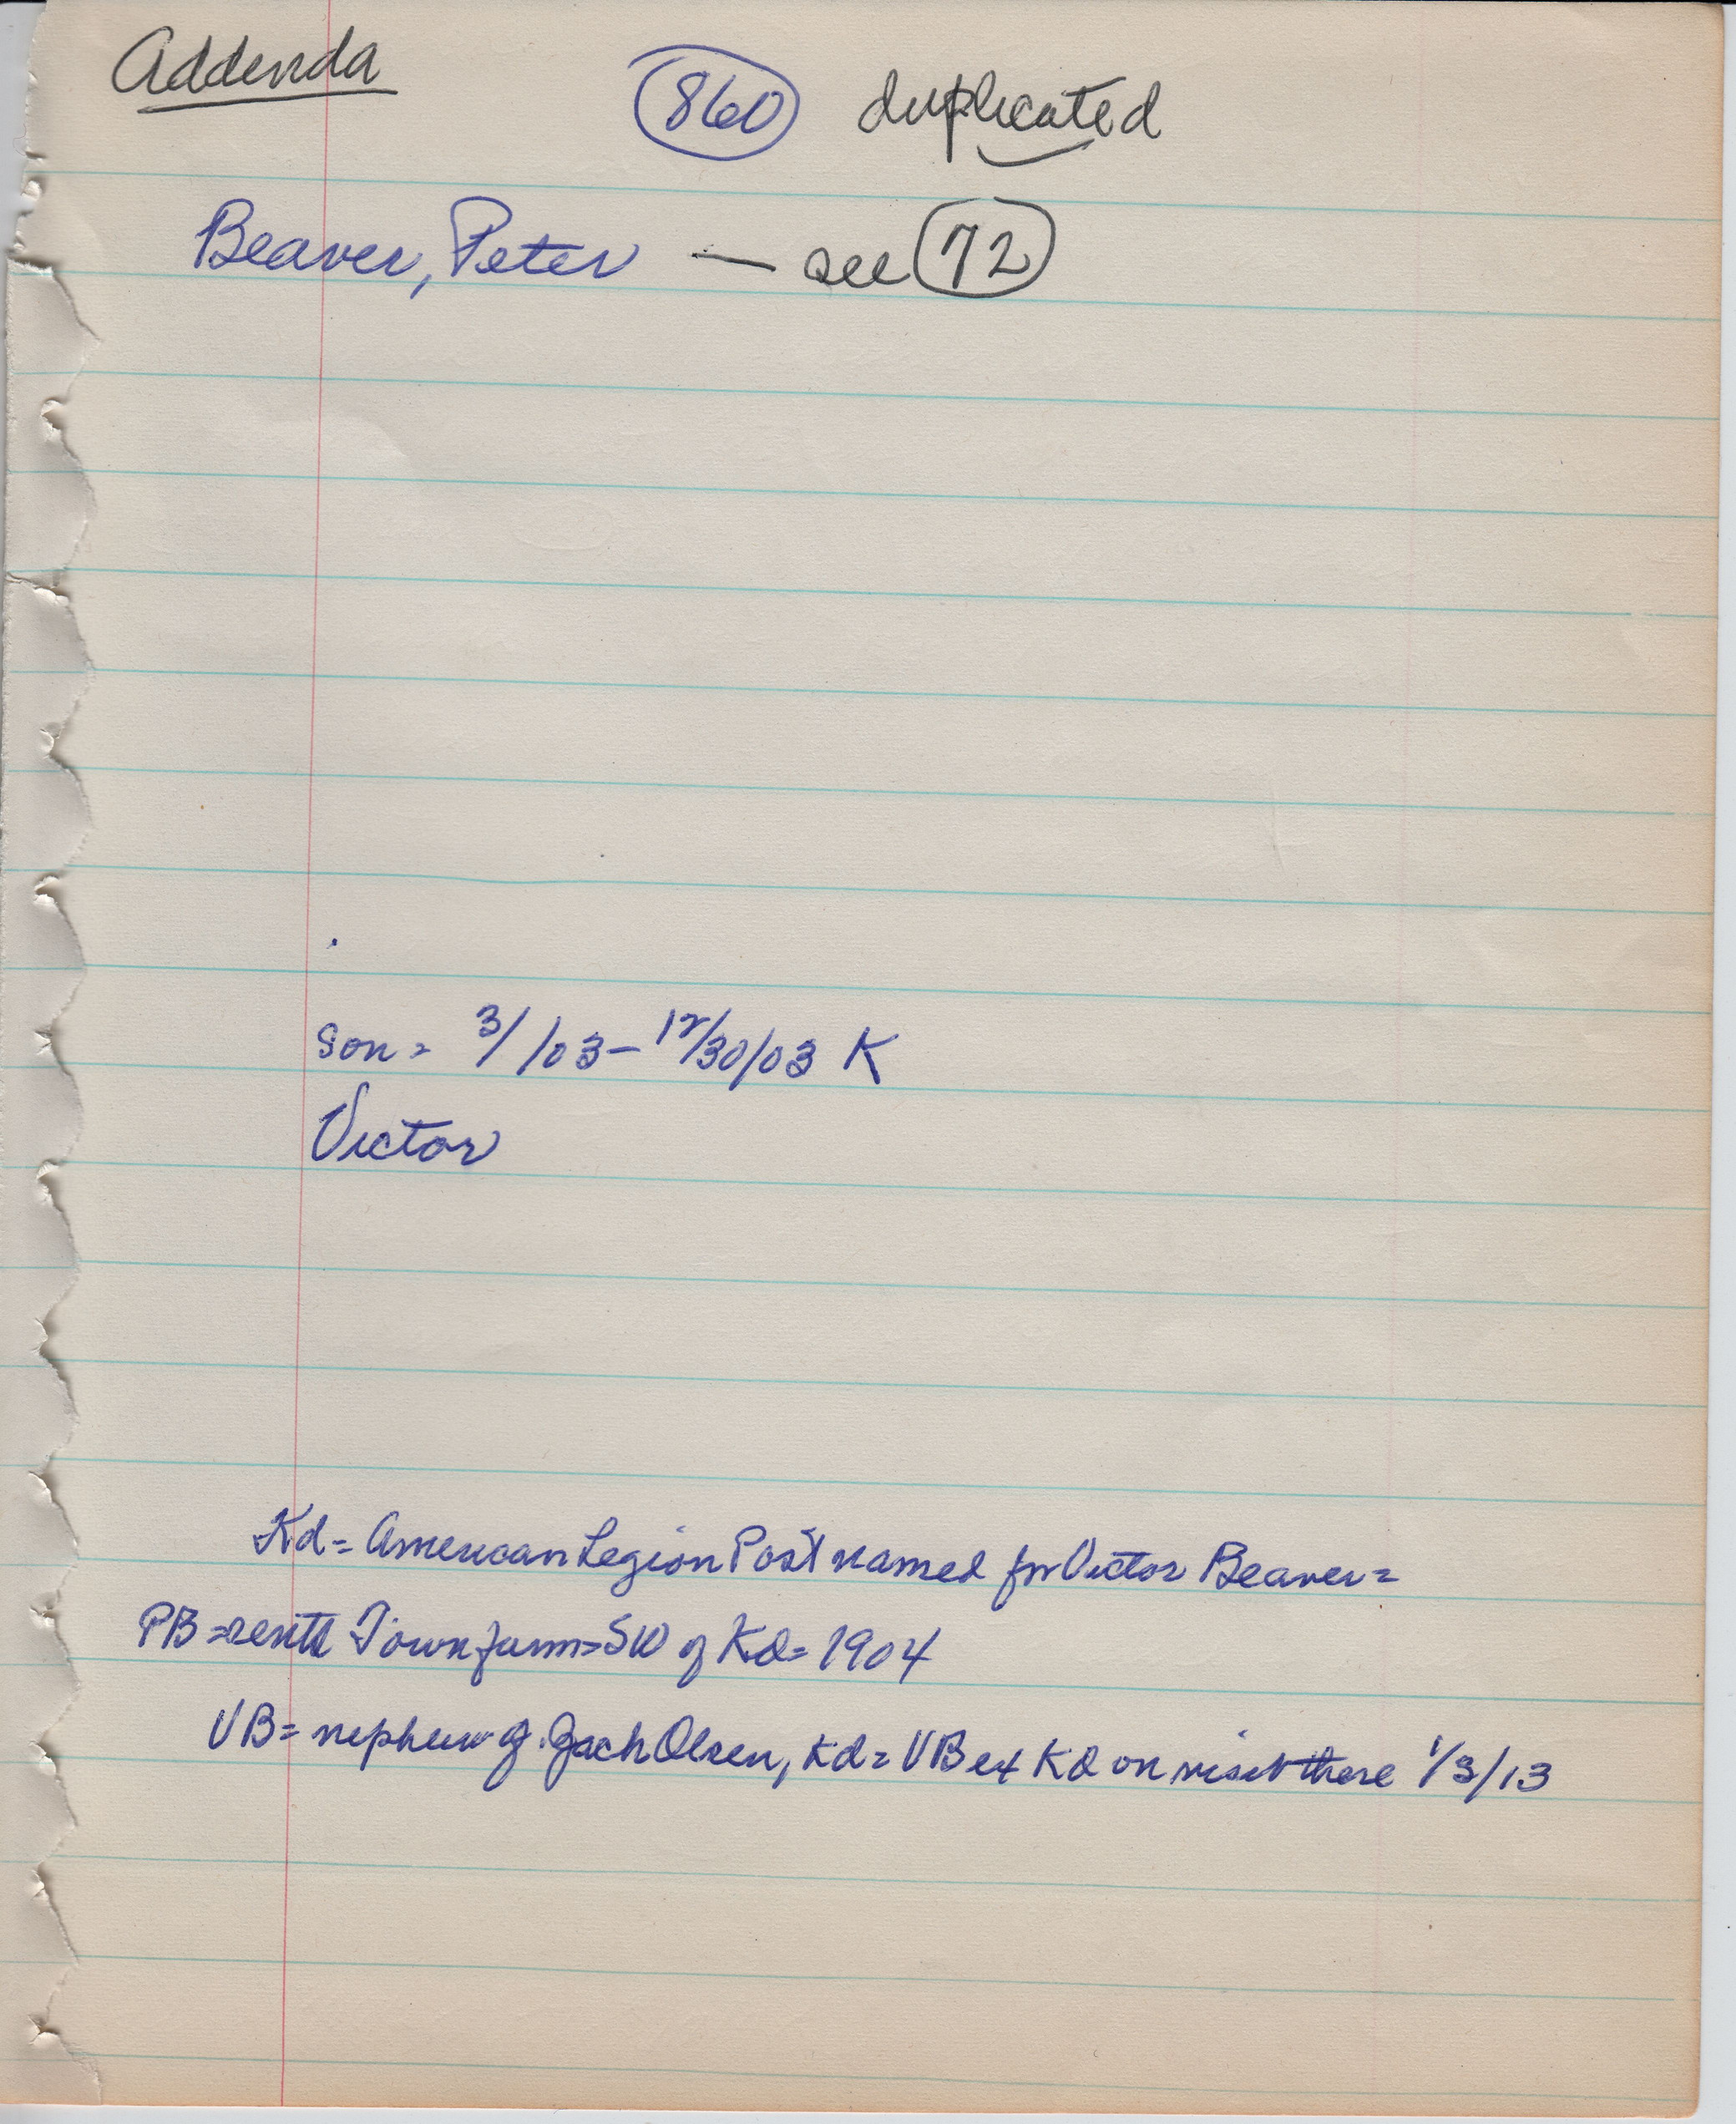 Addenda
860 duplicated
Beaver, Peter — see 72
son = 3/ /03 - 12/30/03 K
Victor
Kd = American Legion Post named for Victor Beaver =
PB = rents Town farm = SW of Kd = 1904
VB = nephew of Jach Olsen, Kd = VB et Kd on visit there 1/3/13